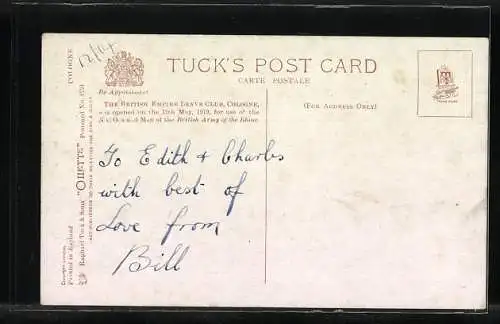 12/04
TUCK'S POST CARD
CARTE POSTALE
By Appointment
THE BRITISH EMPIRE LEAVE CLUB, COLOGNE,
was opened on the 19th May, 1919, for use of the
N.C.O.'s & Men of the British Army of the Rhine
(FOR ADDRESS ONLY)
To Edith & Charles
with best of
Love from
Bill
COLOGNE
Raphael Tuck & Sons' "OILETTE" Postcard No.
Printed in England